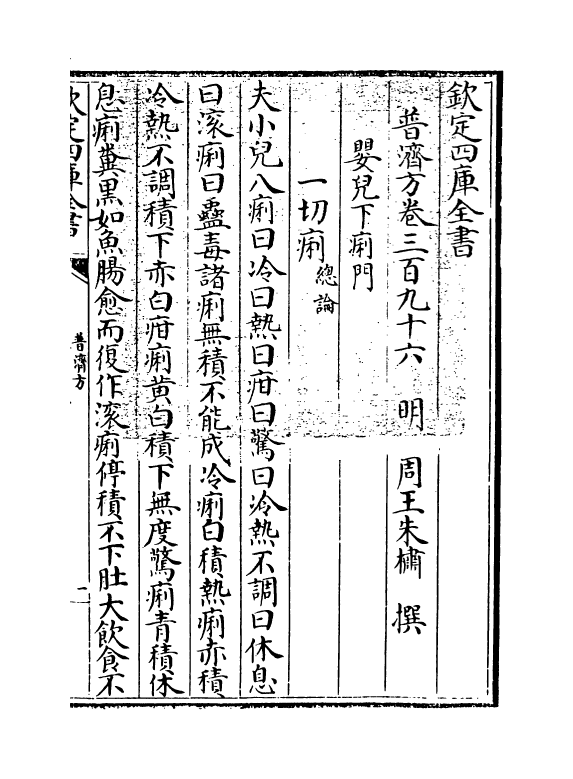 欽定四庫全書
普濟方卷三百九十六　明　周王朱橚　撰
嬰兒下痢門
一切痢總論
夫小兒八痢曰冷曰熱曰疳曰驚曰冷熱不調曰休息
曰滚痢曰蠱毒諸痢無積不能成冷痢白積熱痢赤積
冷熱不調積下赤白疳痢黄白積下無度驚痢青積休
息痢糞黒如魚腸愈而復作滚痢停積不下肚大飲食不
欽定四庫全書
普濟方